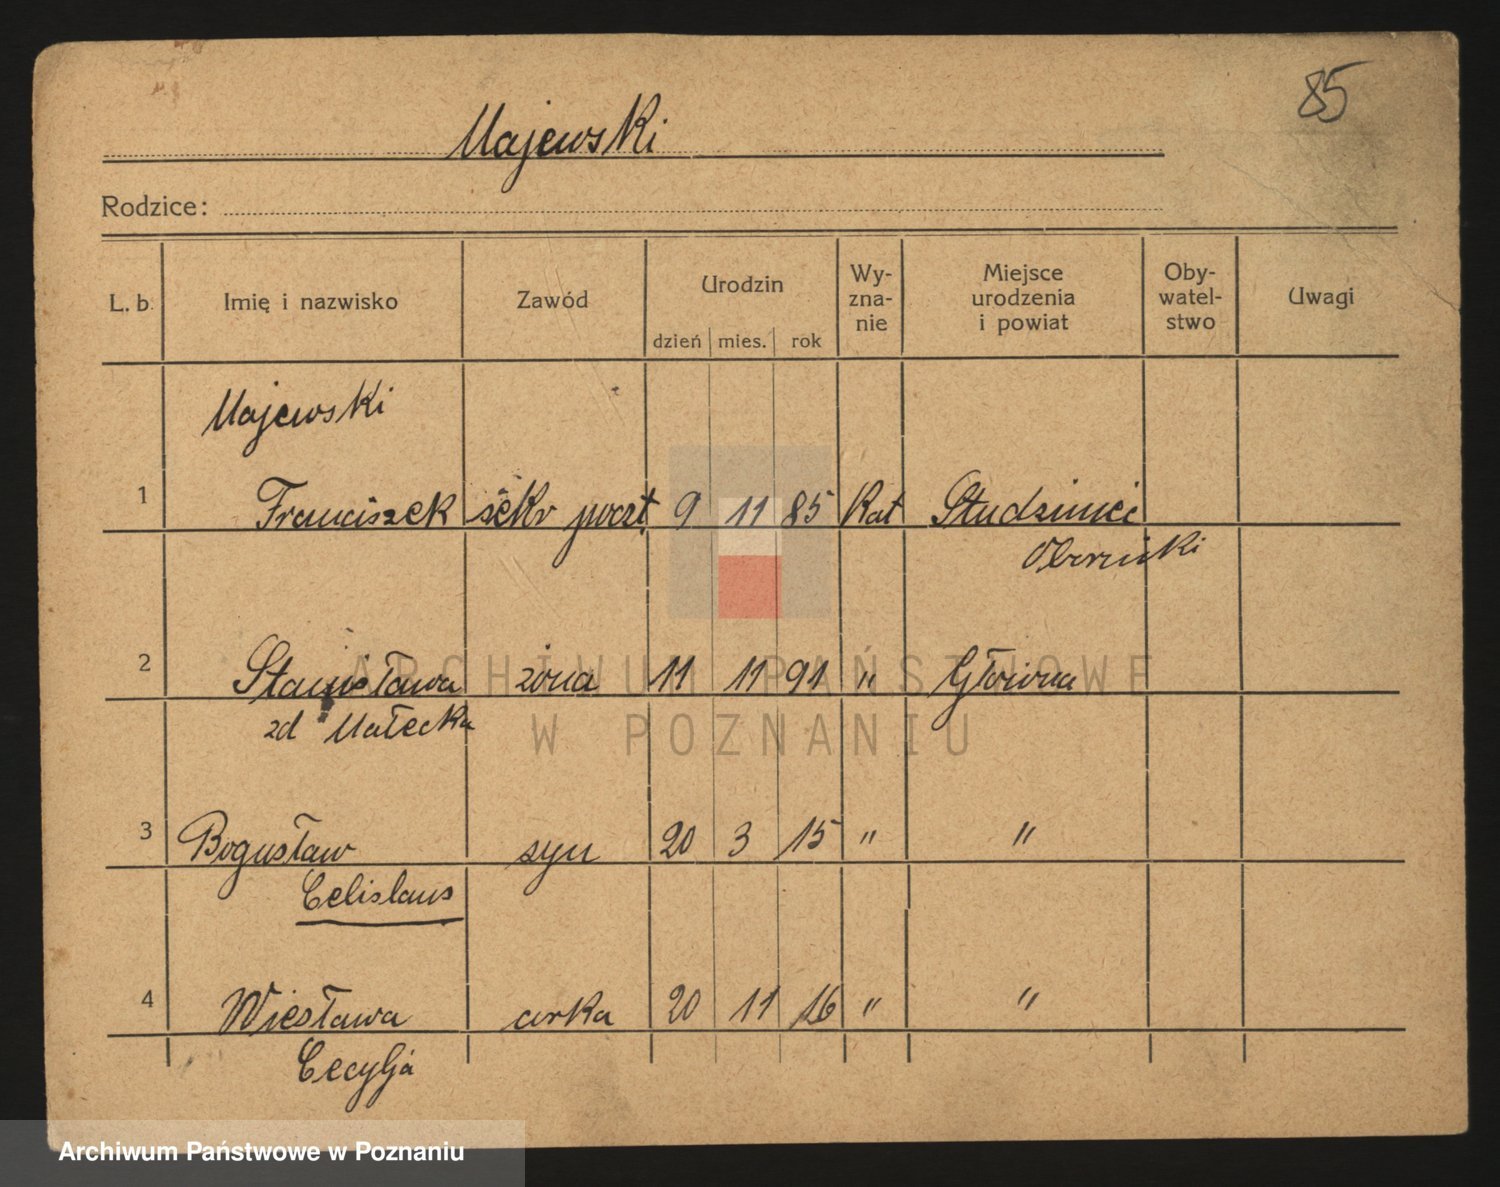 85
Majewski
Rodzice:
L. b. Imię i nazwisko Zawód Urodzin dzień mies. rok Wy-zna-nie Miejsce urodzenia i powiat Oby-watel-stwo Uwagi
Majewski
1 Franciszek sekr poczt. 9 11 85 Kat
Obornicki
2 Stanisława żona 11 11 91 " Główna
zd Małecka
3 Bogusław syn 20 3 15 " "
Celislaus
4 Wiesława crka 20 11 16 " "
Cecylja
ARCHIWUM PAŃSTWOWE
W POZNANIU
Archiwum Państwowe w Poznaniu